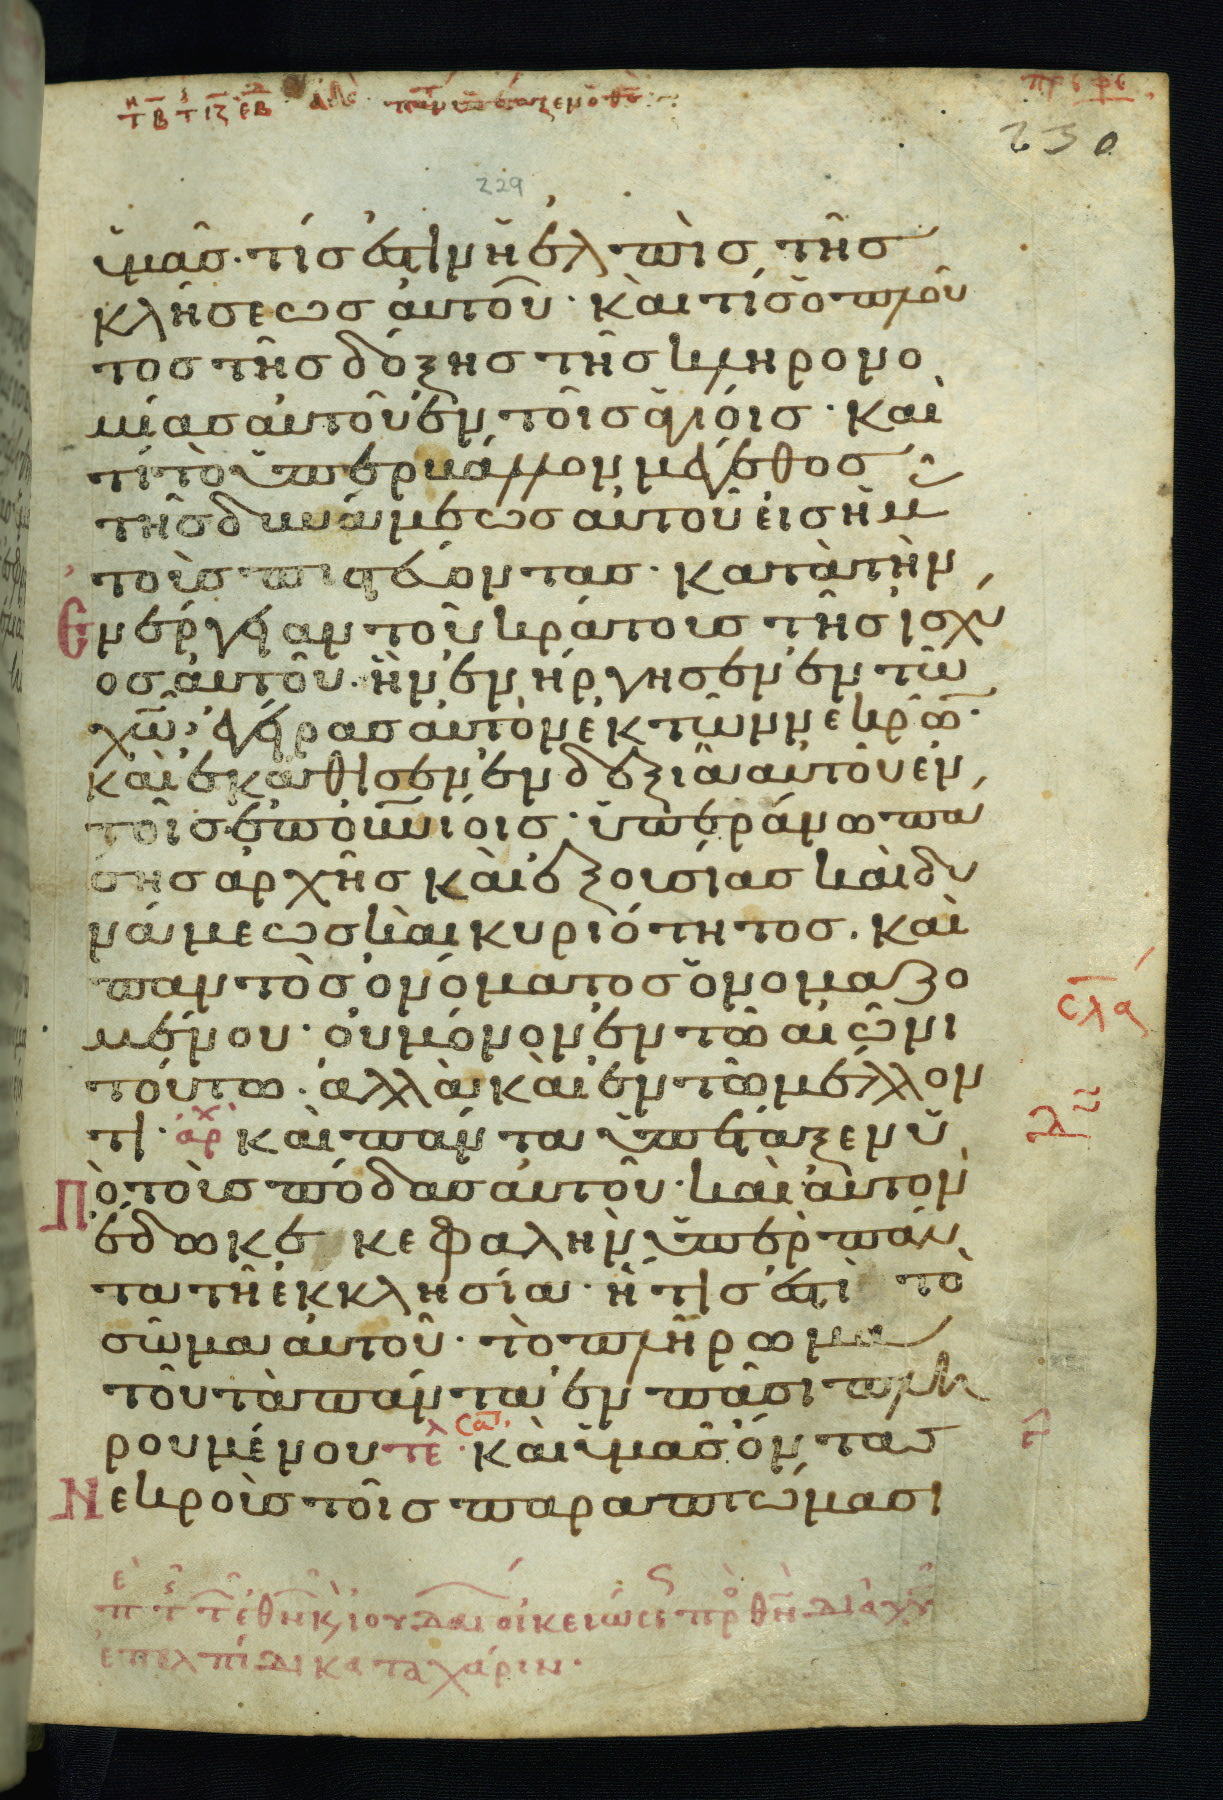 230
229
ὑμᾶσ· τίσ ἐστιν ἡ ἐλπὶσ τῆσ
κλήσεωσ αὐτοῦ· καὶ τίσ ὁ πλοῦ
τοσ τῆσ δόξησ τῆσ κληρονο
μίασ αὐτοῦ ἐν τοῖσ ἁγίοισ· καὶ
τί τὸ ὑπερβάλλον μέγεθοσ
τῆσ δυνάμεωσ αὐτοῦ εἰσ ἡμᾶσ
τοὺσ πιστεύοντασ· κατὰ τὴν
ἐνέργειαν τοῦ κράτουσ τῆσ ἰσχύ
οσ αὐτοῦ· ἣν ἐνήργησεν ἐν τῶ
χῶ· ἐγείρασ αὐτὸν ἐκ τῶν νεκρῶν·
καὶ ἐκάθισεν ἐν δεξιᾶ αὐτοῦ ἐν
τοῖσ ἐπουνίοισ· ὑπεράνω πά
σησ ἀρχῆσ καὶ ἐξουσίασ καὶ δυ
νάμεωσ καὶ κυριότητοσ. καὶ
παντὸσ ὀνόματοσ ὀνομαζο
μένου· οὐ μόνον ἐν τῶ αἰῶνι
τούτω. ἀλλὰ καὶ ἐν τῶ μέλλον
τι· ἀρχ καὶ πάντα ὑπέταξεν ὑ
πὸ τοὺσ πόδασ αὐτοῦ· καὶ αὐτὸν
ἔδωκε κεφαλὴν ὑπὲρ πάν
τα τῆ ἐκκλησία· ἥτισ ἐστὶ τὸ
σῶμα αὐτοῦ· τὸ πλήρωμα
τοῦ τὰ πάντα ἐν πᾶσι πλη
ρουμένου τελ· καὶ ὑμᾶσ ὄντασ
νεκροὺσ τοῖσ παραπτώμασι
ἐπ ἐλπίδι κατα χάριν·